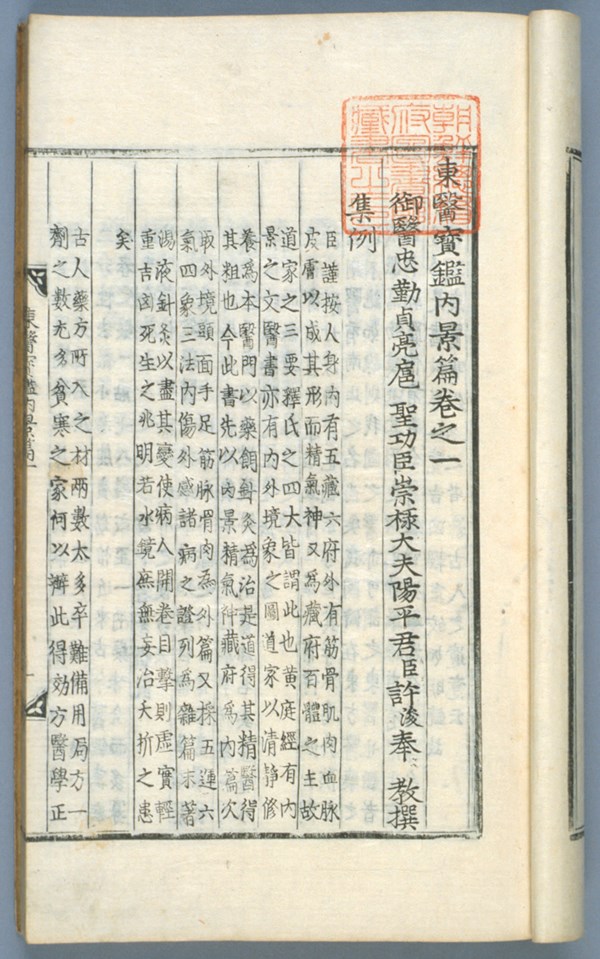 朝鮮總督
府圖書館
藏書之印
東醫寶鑑內景篇卷之一
御醫忠勤貞亮扈 聖功臣崇祿大夫陽平君臣許浚奉 教撰
集例
臣謹按人身內有五藏六府外有筋骨肌肉血脉
皮膚以成其形而精氣神又爲藏府百體之主故
道家之三要釋氏之四大皆謂此也黃庭經有內
景之文醫書亦有內外境象之圖道家以清靜修
養爲本醫門以藥餌針灸爲治是道得其精醫得
其粗也今此書先以內景精氣神藏府爲內篇次
取外境頭面手足筋脉骨肉爲外篇又採五運六
氣四象三法內傷外感諸病之證列爲雜篇末著
湯液針灸以盡其變使病人開卷目擊則虛實輕
重吉凶死生之兆明若水鏡庶無妄治夭折之患
矣
古人藥方所入之材兩數太多卒難備用局方一
劑之數尤多貧寒之家何以辦此得効方醫學正
東醫寶鑑內景篇一